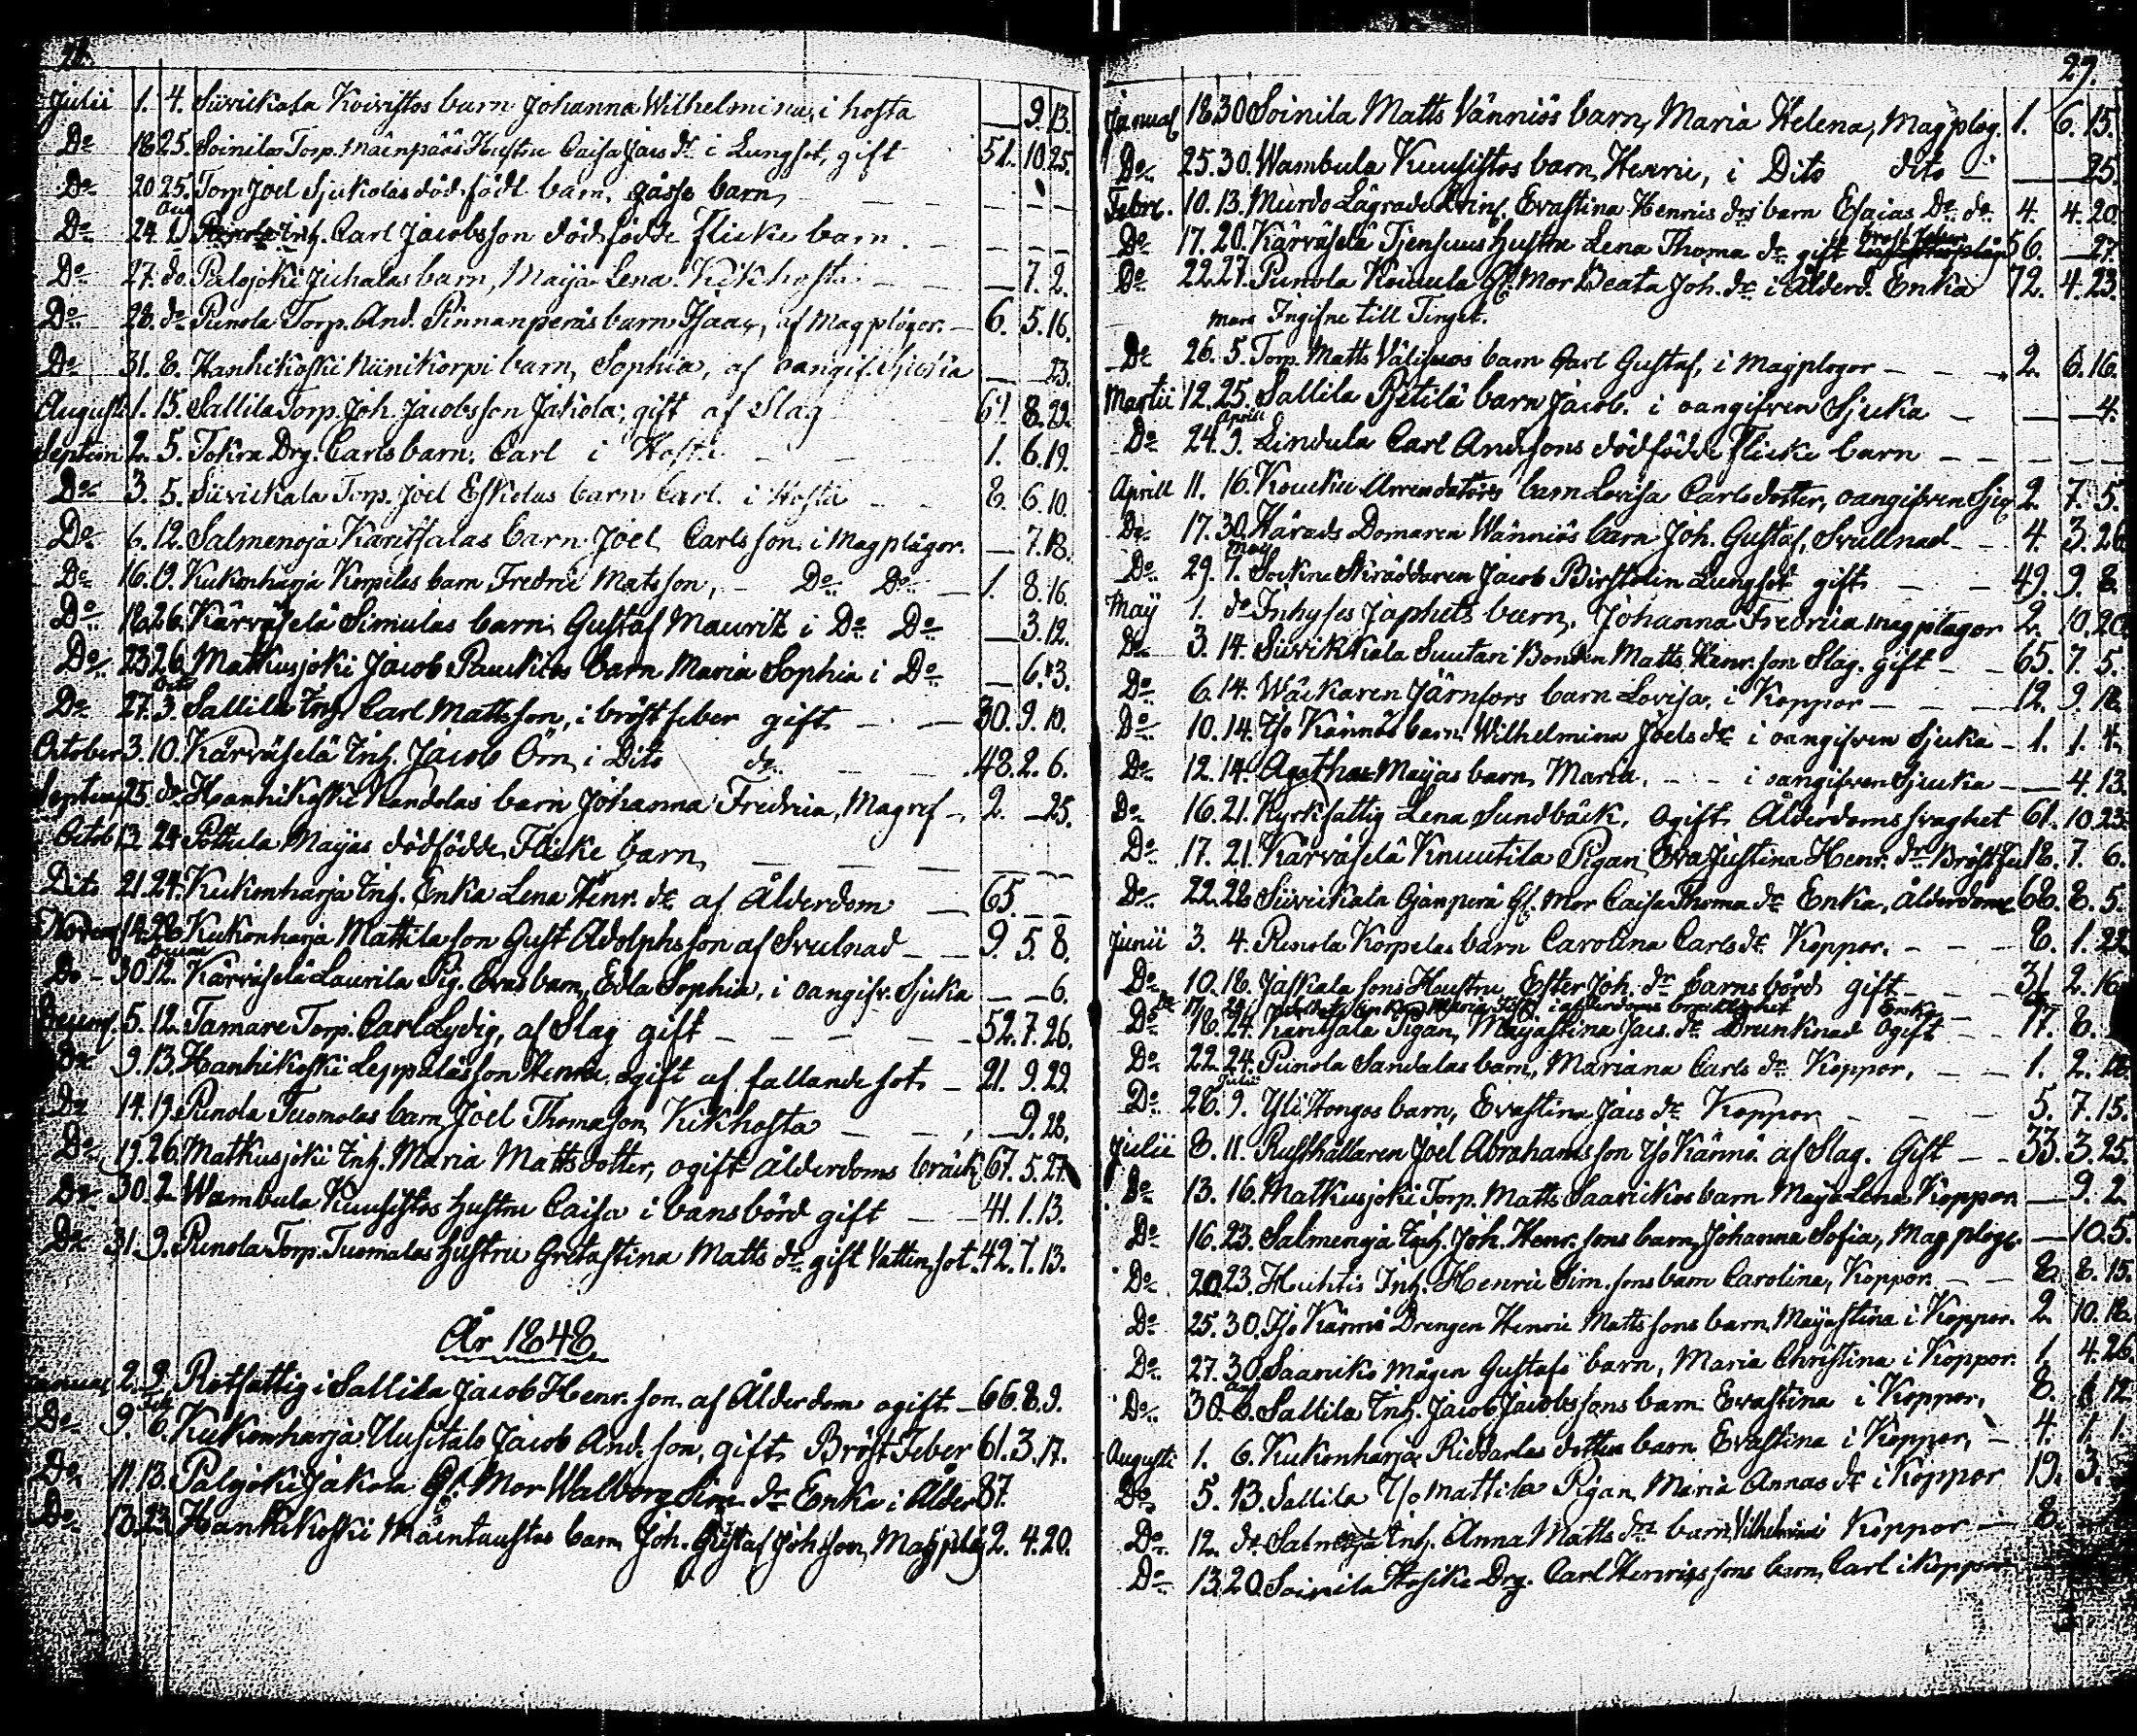 Julii 1. 4. Siivickala Koivistos barn Johanna Wilhelmina, i hosta — 9. 13.
Do 18 25. Soinilas Torp. Mäenpääs Hustru Caisa Jacs dr i Lungsot, gift 51. 10. 25.
Do 20 25. Torp Joel Sjukolas död född barn, gåsse barn, — — —
Aug
Do 24. 1. Punola Inh. Carl Jacobsson dödfödde flicke barn. — — —
Do 27. do. Palojoki Juhalas barn, Maija Lena. Kikhosta — — 7. 2.
Do 28. do Punola Torp. And. Pinnanperäs barn Isaac, af Magplågor. — 6. 5. 16.
Do 31. 8. Hanhikoski Niinikorpi barn, Sophia, af oangif. Sjuka — 23.
Augusti 1. 15. Sallila Torp. Joh. Jacobsson Jakola, gift af Slag 61. 8. 29.
Septem 2. 5. Tokra Drg. Carls barn. Carl i Hosta — 1. 6. 19.
Do 3. 5. Siivickala Torp. Joel Eskolas barn Carl. i Hosta — 8. 6. 10.
Do 6. 12. Salmenoja Karitsalas barn Joel Carlsson i Magplågor. — 7. 18.
Do 16. 19. Kukonharja Korpelas barn Fredric Matsson, — Do Do — 1. 8. 16.
Do 18 26. Kärväselä Simulas barn Gustaf Mauritz i Do Do — 3. 12.
Do 23 26. Matkusjoki Jacob Pauckios barn Maria Sophia i Do — 6. 3.
Octo
Do 27. 3. Sallila Inh. Carl Mattsson, i bröstfeber gift — 30. 9. 10.
October 3. 10. Kärväselä Inh. Jacob Öm, i Dito do. — 48. 2. 6.
Septem 25. do Hanhikoski Kandolas barn Johanna Fredrica, Magref — 2. — 25.
Octob 13 24 Pottula Maijas dödfödde Flicke barn, — — —
Dito 21. 24. Kukonharja Inh. Enka Lena Henr. dr af Ålderdom — 65. — —
Novem 14. 28. Kukonharja Mattila son Gust Adolphsson af Svulnad — 9. 5. 8.
Do 30. 12. Kärväselä Laurila Pig. Evas barn, Edla Sophia, i oangifv. Sjuka — — 6.
Decemb 5. 12. Tamare Torp. Carl Lydig, af Slag gift — 52. 7. 26.
Do 9. 13. Hanhikoski Leppäläs son Henric, ogift af fallandesot — 21. 9. 29
Do 14. 19. Punola Tuomolas barn, Joel Thomasson, Kikhosta — 9. 28.
Do 19. 26. Matkusjoki Inh. Maria Mattsdotter, ogift ålderdoms bräck. 67. 5. 27.
Do 30. 2 Wambula Kuusistos hustru Caisa i bansbörd gift — 41. 1. 13.
Do 31. 9. Punola Torp. Tuomalas hustru Gretastina Matts dr gift Vattensot. 42. 7. 13.
År 1848.
2. 9. Rotfattig i Sallila Jacob Henr. son af Ålderdom ogift — 66. 8. 9.
Feb
Do 9. 6. Kukonharja Uusitalo Jacob And. son, gift, Bröst Feber 61. 3. 17.
Do 11. 13. Palojoki Jakola Gl. Mor Walborg Sim. dr Enka i Ålder 87.
Do 18. 23. Hanhikoski Mäentaustas barn Joh. Gustaf Johsson, Magplåg 2. 4. 20.
29.
Januar 18 30 Soinila Matts Vänniös barn, Maria Helena, Magplog. 1. 6. 15.
Do 25. 30. Wambula Kuusistos barn, Henric, i Dito dito — — 25.
Febr. 10. 13. Murdo Lägrade Qvins. Evastina Henrics drs barn Esaias Do do. 4. 4. 20
Do 17. 20. Kärväselä Tjensuus hustru Lena Thoma dr gift bröst feber 56. — 27.
Do 22 27. Punola Koivula Gl. Mor Beata Joh. dr i Ålderd. Enka 72. 4. 23.
Mars Ingifne till Tinget.
Do 26. 5. Torp. Matts Välimas barn Carl Gustaf, i Magplogor — 2. 6. 16.
Martii 12. 25. Sallila Pietilä barn Jacob. i oangifven Sjuka — — 4.
Aprill
Do 24. 9. Lindula Carl Andssons dödfödde Flicke barn — — —
Aprill 11. 16. Koucku Arrendators barn Lovisa Carlsdotter, oangifven Sju 2. 7. 5.
Do 17. 30. Härads Domaren Wänniös barn Joh. Gustaf, Svullnad — 4. 3. 26
May
Do 29. 7. Sockne Skräddaren Jacob Birstolin Lungsot gift — 49. 9. 8.
Maij 1. do Inhyses Japhets barn, Johanna Fredrica magplågor 2. 10. 20
Do 3. 14. Siivikkala Suutari Bonden Matts Henr. son Slag. gift — 65. 7. 5.
Do 6. 14. Wäckaren Järnfors barn Lovisa, i Koppor — 12. 9. 18.
Do 10. 14. Iso Kännös barn Wilhelmina Joels dr i oangifven Sjuka — 1. 1. 4.
Do 12. 14. Agathas Maijas barn, Maria, — i oangifven Sjucka — 4. 13.
Do 16. 21. Kyrkfattig Lena Sundbäck, ogift Ålderdoms svaghet 61. 10. 23
Do 17. 21. Kärväselä Knuutila Pigan Eva Justina Henr. dr Bröstfe 18. 7. 6.
Do 22. 28 Siivickala Ojanperä Gl. Mor Caisa Thoma dr Enka, Ålderdom 68. 8. 5.
Junii 3. 4. Punola Korpelas barn Carolina Carls dr Koppor. — 8. 1. 22
Do 10. 18. Jaskala sons Hustru Ester Joh. dr barnsbörd gift — 31 2. 16
Do 18. 24. Karitsala Pigan, Majastina Jacs. dr Drunknad ogift 17. 8.
Do 22. 24. Punola Sandalas barn, Mariana Carls dr Koppor, — 1. 2. 18.
Julii
Do 26. 9. Yli Hongos barn, Evastina Jacs dr Koppor — 5. 7. 15.
Julii 8. 11. Rusthållaren Joel Abrahamsson Iso Kännö af Slag. Gift — 33. 3. 25.
Do 13. 16. Matkusjoki Torp. Matts Saarickos barn Maija Lena Koppor — 9. 2.
Do 16. 23. Salmenoja Inh. Joh. Henr. sons barn, Johanna Sofia, Magplogr. — 10. 5.
Do 20 23. Huhtis Inh. Henric Sim. sons barn Carolina, Koppor. — 8. 8. 15.
Do 25. 30. Iso Kännö Drengen Henric Mattssons barn, Majastina i Koppor. 2. 10. 18.
Do 27. 30. Saariko Mågen Gustafs barn, Maria Christina i Koppor. 1. 4. 26.
Do 30. 6. Sallila Inh. Jacob Jacobssons barn Evastina i Koppor, 8. 1 12
Augusti 1. 6. Kukonharja Riddarlas dotter barn Evastina i Koppor, — 4. 1. 1.
Do 5. 13. Sallila Iso Mattila Pigan Maria Annas dr i Koppor 19. 3.
Do 12. do Salmenoja Inh. Anna Matts drs barn Vilhelmina Koppor — 8.
Do 13. 20. Soinila Hosike Drg. Carl Henricssons barn, Carl i Koppor